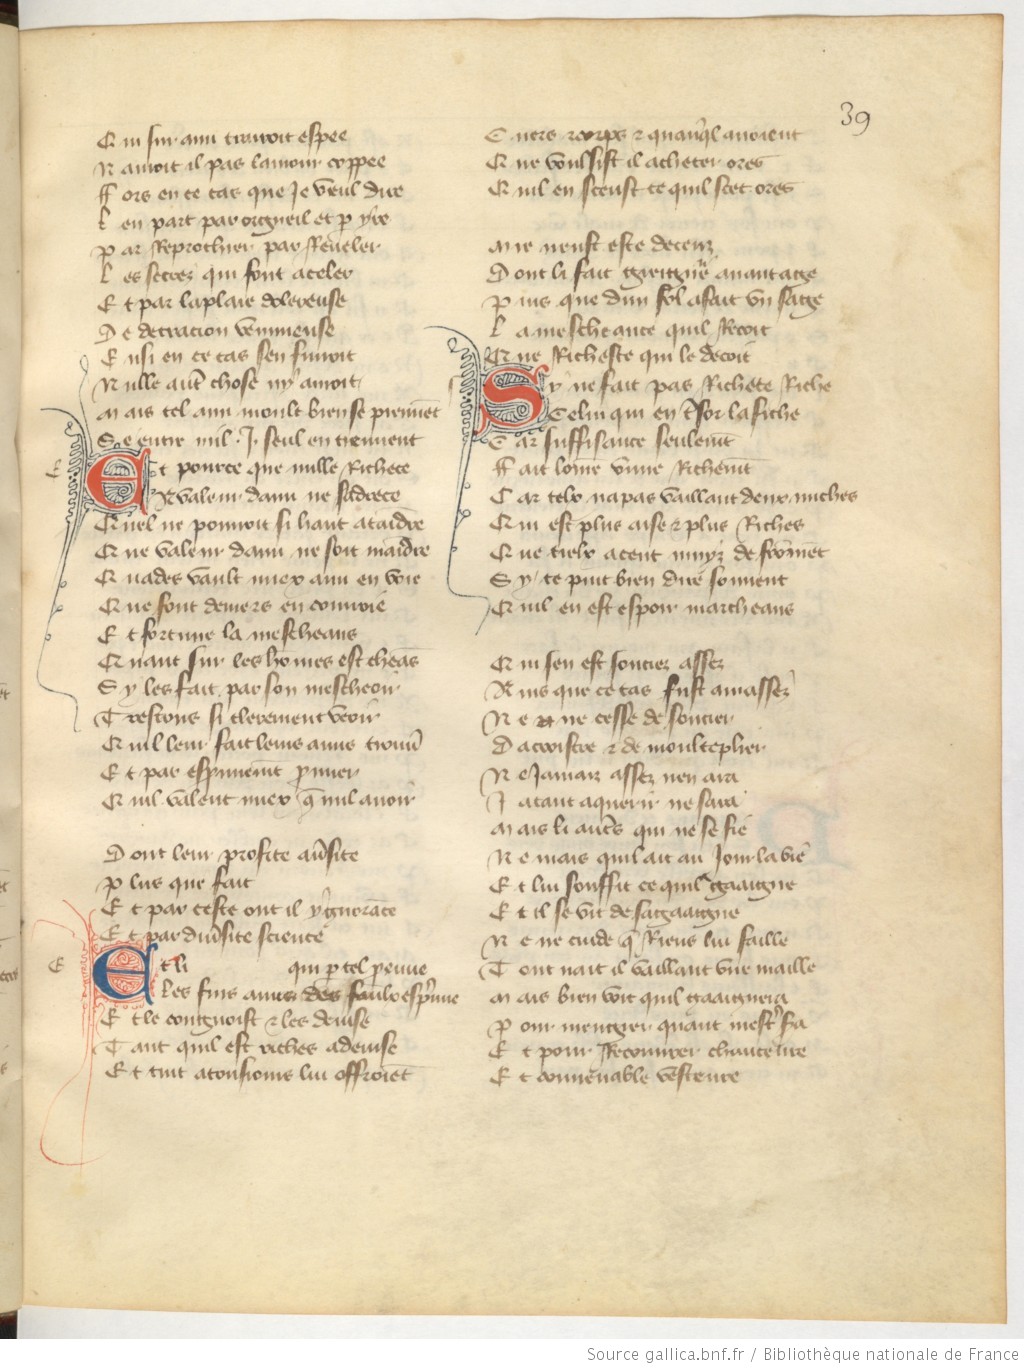 39
Qui sur ami trairoit espee
N auroit il pas lamour coppee
ff ors en ce cas que Je veul dire
L en part par orgueil et p yre
P ar Reprochier par Reveler
L es secrez qui font a celer
E t par la plaie dolereuse
D e detracion venimeuse
E nsi en ce cas sen fuiroit
N ulle autre chose ny auroit
M ais tel ami moult bien se preuvent
S e entre mil .I. seul en treuvent
Et pource que nulle Richece
A valeur dami ne sadrece
Q uel ne pourroit si haut ataidre
Q ue valeur dami ne soit maidre
Q uades vault miex ami en voie
Q ue font deniers en couroie
E t fortune la mescheans
Q uant sur les homes est cheas
S y les fait par son mescheoir
T restous si clerement veoir
Q uil leur fait leurs amis trouver
E t par experiment prouver
Q uil valent miex q nul avoir
D ont leur profite aversite
P lus que fait
E t par ceste ont il ygnorace
E t par diversite science
E
Et li qui p tel preuve
Les fins amis des faulx espreuve
E t le congnoist z les devise
T ant quil est riches a devise
E t tuit a tousiours lui offroient
C uers z corps z quanquil avoient
Q ue voulsist il acheter ores
Q uil en sceust ce quil scet ores
M ie neust este deceuz
D ont li fait greigneur avantage
P uis que dun fol a fait un sage
L a mescheance quil Recoit
Q ue Richesse qui le decoit
Sy ne fait pas Richece Riche
Celui qui en tresor la fiche
C ar suffisance seulement
ff ait lome vivre Richement
C ar telx na pas vaillant deux miches
Q ui est plus aise z plus Riches
Q ue tielx a cent muyz de froment
S y te puit bien dire comment
Q uil en est espoir marcheans
Q ui sen est soucier assez
A ins que ce tas fust amassez
N e ne cesse de soucier
D acroistre z de moulteplier
N e Jamaiz assez nen ara
J a tant aquerir ne sara
M ais li autres qui ne se fie
N e mais quil ait au Jour la vie
E t lui souffit ce quil gaaigne
E t il se vit de sa gaaigne
N e ne cuide q Riens lui faille
T out nait il vaillant une maille
M ais bien voit quil gaaignera
P our mengier quant mestier sera
E t pour Recouvrer chauceure
E t convenable vesteure
E
Source gallica.bnf.fr / Bibliothèque nationale de France